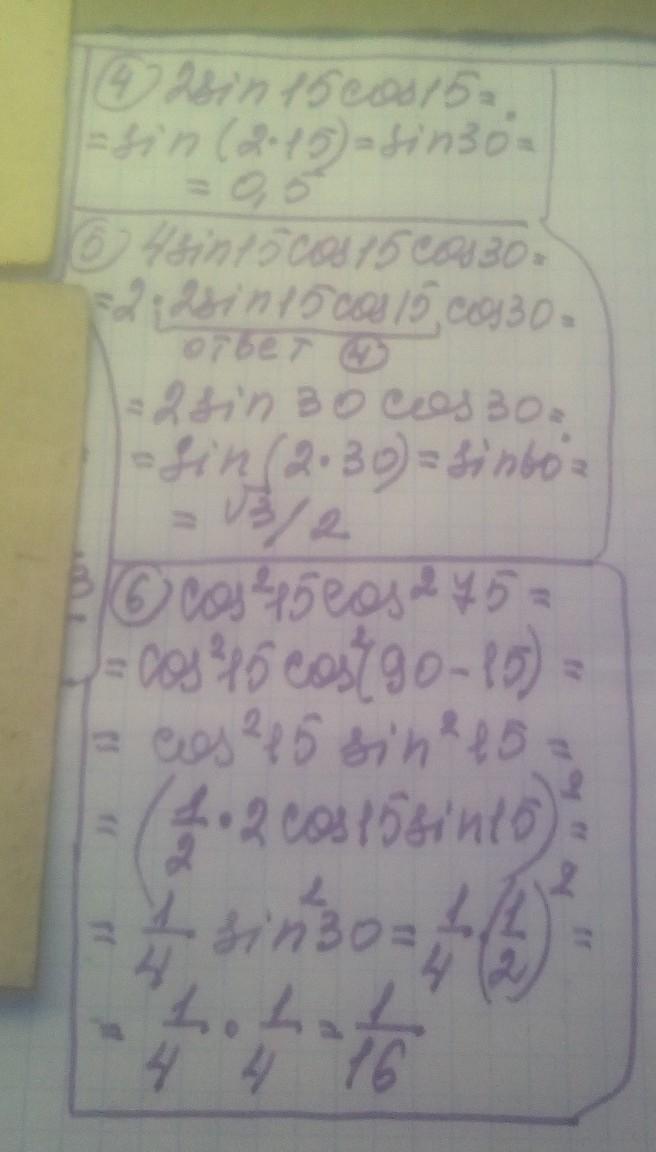 ④ 2sin15cos15=
=sin(2·15)=sin30°=
=0,5
⑤ 4sin15cos15cos30=
=2·2sin15cos15cos30=
ответ ④
=2sin30cos30=
=sin(2·30)=sin60°=
=√3/2
⑥ cos²15cos²75=
=cos²15cos²(90-15)=
=cos²15sin²15=
=(1/2·2cos15sin15)²=
=1/4 sin²30=1/4·(1/2)²=
=1/4·1/4=1/16